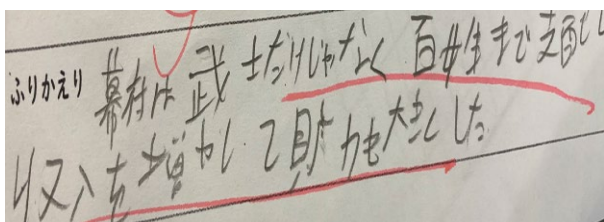 ふりかえり 幕府は武士だけじゃなく百姓まで支配し
収入を増やして財力を大きくした